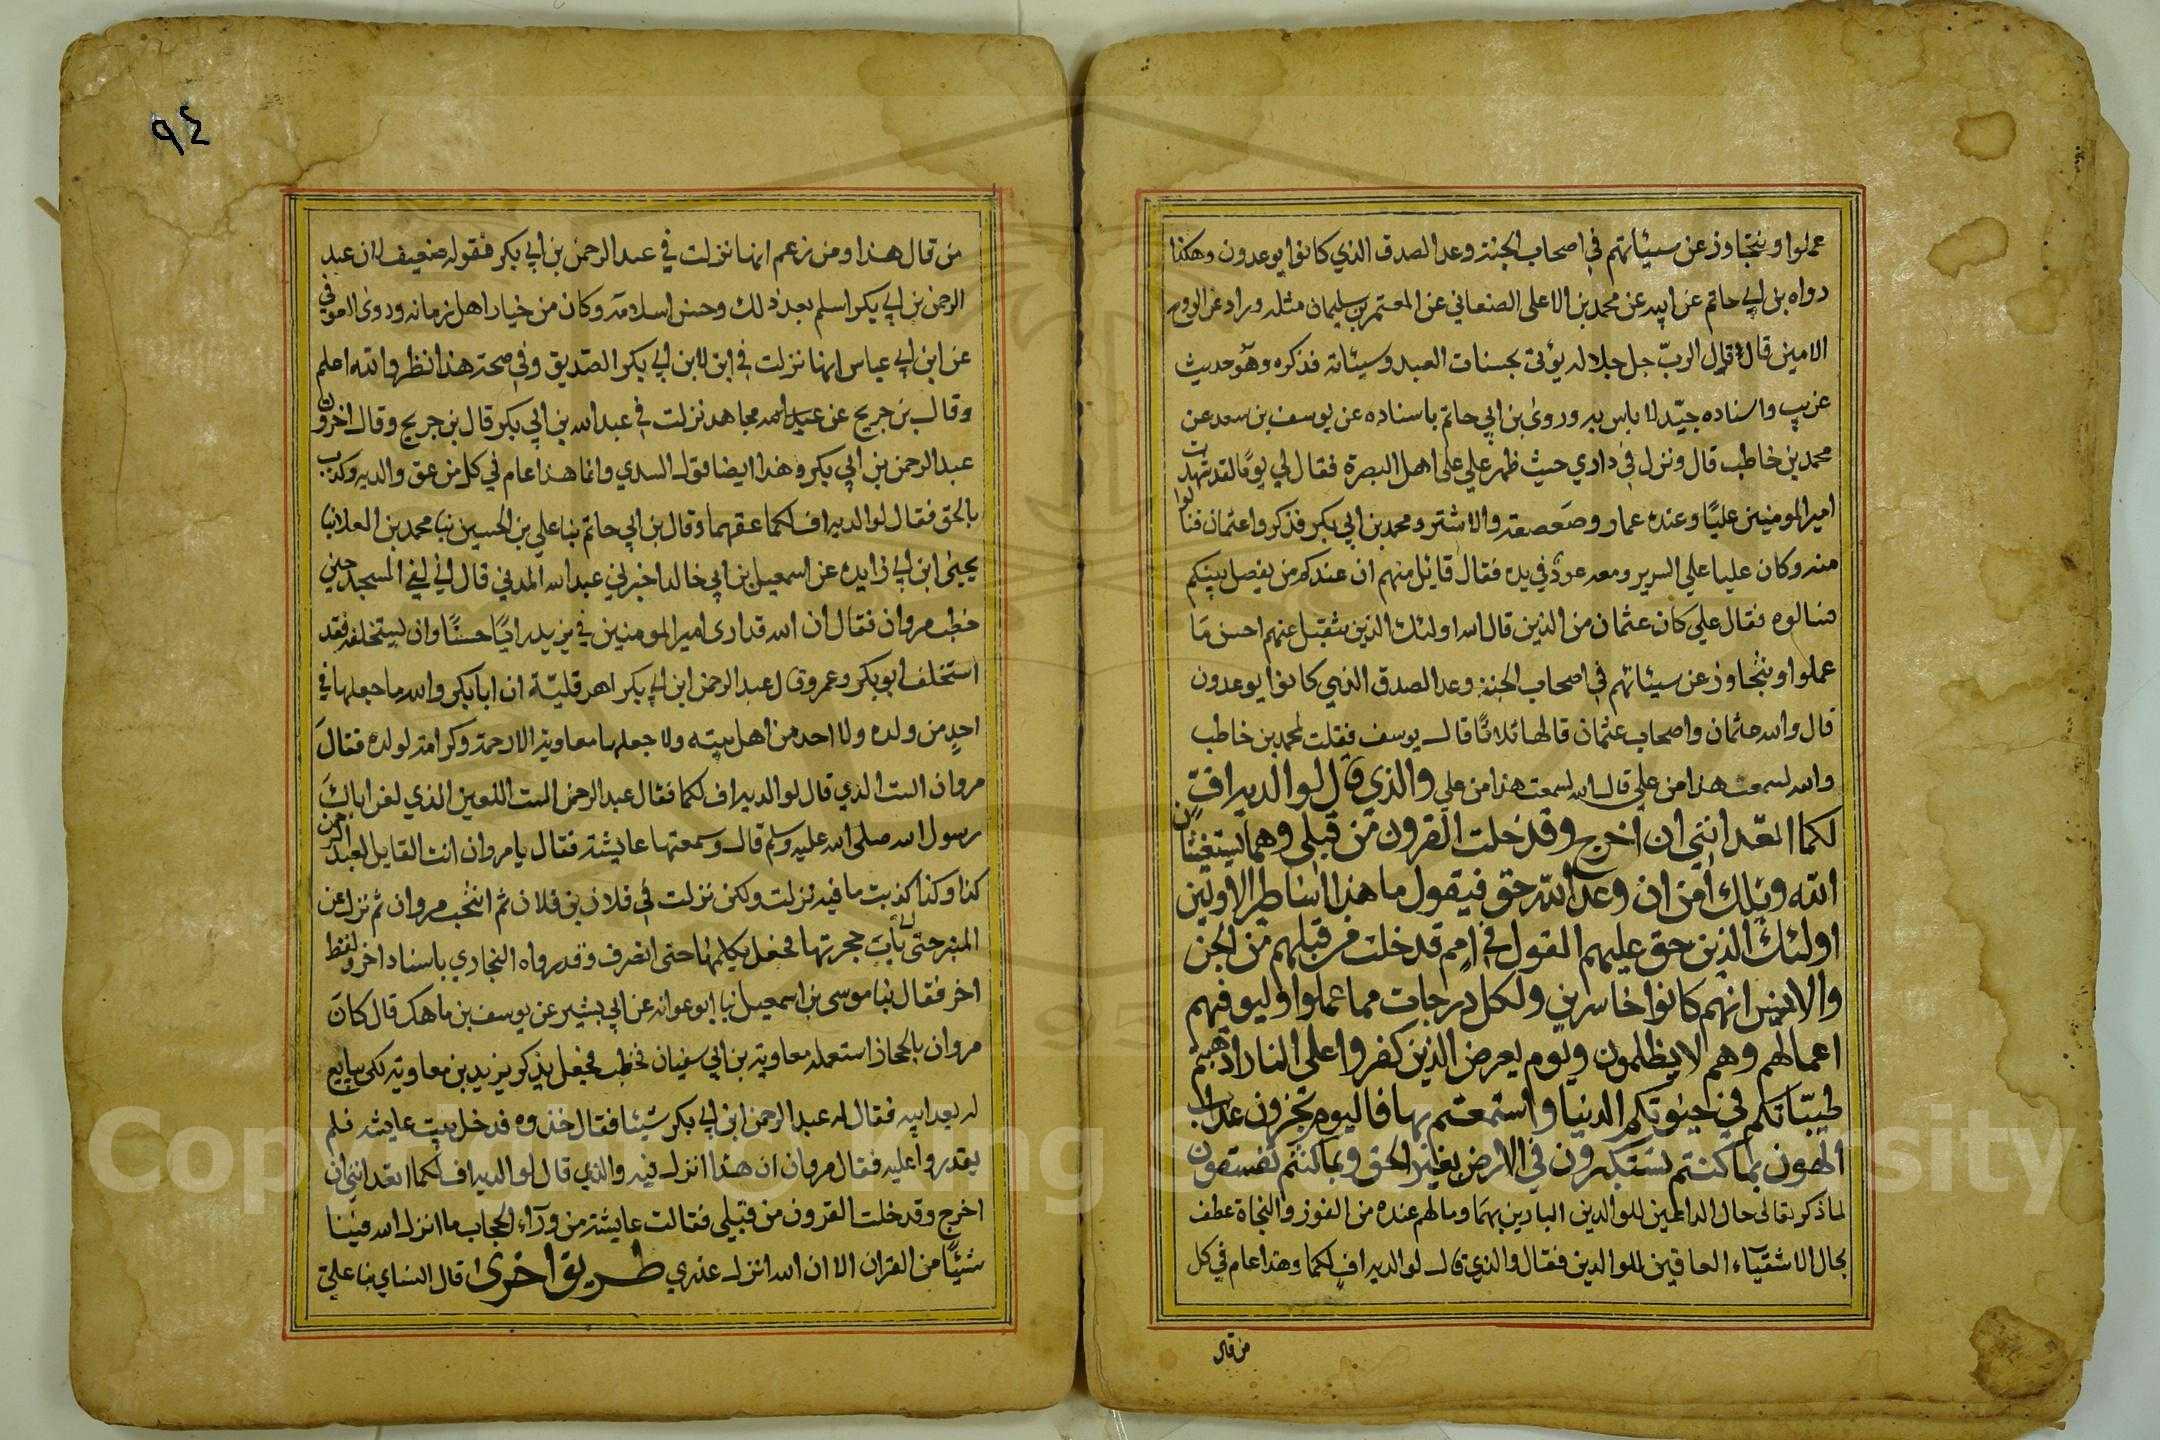 عملوا ونتجاوز عن سيئاتهم في اصحاب الجنة وعد الصدق الذي كانوا يوعدون وهكذا
رواه بن ابي حاتم عن ابيه عن محمد بن الاعلى الصنعاني عن المعتمر بن سليمان مثله وزاد عن الروح
الامين قال قال الرب جل جلاله يؤتى بحسنات العبد وسيئاته فذكره وهو حديث
غريب واسناده جيّد لا باس به وروى بن ابي حاتم باسناده عن يوسف بن سعد عن
محمد بن خاطب قال ونزل في داري حيث ظهر علي على اهل البصرة فقال لي يومًا لقد شهدت
امير المومنين عليًا وعنده عمار وصَعصعة والاشتر ومحمد بن ابي بكر فذكروا عثمان فنالوا
منه وكان عليا على السرير ومعه عودٌ في يده فقال قائل منهم ان عندكم من يفصل بينكم
فسالوه فقال علي كان عثمان من الذين قال الله اولئك الذين نتقبل عنهم احسن مَا
عملوا ونتجاوز عن سيئاتهم في اصحاب الجنة وعد الصدق الذي كانوا يوعدون
قال والله عثمان واصحاب عثمان قالها ثلاثًا قال يوسف فقلت لمحمد بن خاطب
والله لسمعت هذا من علي قال الله لسمعت هذا من علي والذي قال لوالديه افٍّ
لكما اتعدانني ان اخرج وقد خلت القرون مّن قبلي وهما يستغيثان
الله ويلك اٰمن ان وعد الله حق فيقول ما هذا الا اساطير الاولين
اولئك الذين حق عليهم القول في امم قد خلت من قبلهم مّن الجن
والانس انهم كانوا خاسرين ولكل درجات مما عملوا وليوفيهم
اعمالهم وهم لا يظلمون ويوم يعرض الذين كفروا على النار اذهبتم
طيبّاتكم في حيٰوتكم الدنيا واستمتعتم بها فاليوم تجزون عذاب
الهون بما كنتم تستكبرون في الارض بغير الحق وبما كنتم تفسقون
لما ذكر تعالى حال الداعين للوالدين البارين بهمَا وما لهم عنده من الفوز والنجاة عطف
بحال الاشقيآء العاقين للوالدين فقال والذي قال لوالديه افٍ لكما وهذا عام في كل
من قال
٩٤
من قال هذا ومن زعم انها نزلت في عبد الرحمن بن ابي بكر فقوله ضعيف لان عبد
الرحمن بن ابي بكر اسلم بعد ذلك وحسن اسلامه وكان من خيار اهل زمانه وروى العوفي
عن ابن ابي عباس انها نزلت في ابن لابن ابي بكر الصّديق وفي صحة هذا نظر والله اعلم
وقال بن جريج عن مجاهد نزلت في عبد الله بن ابي بكر قال بن جريج وقال اخرون
عبد الرحمن بن ابي بكر وهذا ايضا قول السدي وانما هذا عام في كل من عق والديه وكذب
بالحق فقال لوالديه اف لكما عقهما وقال بن ابي حاتم نبا علي بن الحسين نبا محمد بن العلا نبا
يحيى ابن ابي زايده عن اسمعيل بن ابي خالد اخبرني عبد الله المدني قال اني لفي المسجد حين
خطب مروان فقال ان الله قد ارى امير المومنين في يزيد رايًا حسنًا وان يستخلفه فقد
استخلف ابو بكر وعمر وقال عبد الرحمن ابن ابي بكر اهرقليّة ان ابا بكر والله ما جعلها في
احدٍ من ولده ولا احد من اهل بيته ولا جعلها معاوية الا رحمة وكرامة لولده فقالَ
مروان الست الذي قال لوالديه اف لكما فقال عبد الرحمن الست اللعين الذي لعن اباكَ
رسول الله صلى الله عليه وسلم قال وسمعتها عايشة فقال يا مروان انت القايل لعبد الرحمن
كذا وكذا كذبت ما فيه نزلت ولكن نزلت في فلان بن فلان ثم انتحب مروان ثم نزل عن
المنبر حتى باب حجرتها فجعل يكلمها حتى انصرف وقد رواه البخاري باسناد اخر ولفظ
اخر فقال نبا موسى بن اسمعيل نبا ابو عوانه عن ابي بشير عن يوسف بن ماهك قال كانَ
مروان بالحجاز استعمله معاوية بن ابي سفيان فخطب فجعل يذكر يزيد بن معاوية لكي يبايع
له بعد ابيه فقال له عبد الرحمن ابن ابي بكر شيئا فقال خذوه فدخل بيت عايشه فلم
يقدروا عليه فقال مروان ان هذا انزل فيه والذي قال لوالديه اف لكما اتعدانني ان
اخرج وقد خلت القرون من قبلي فقالت عايشة من وراء الحجاب ما انزل الله فينا
شيئًا من القران الا ان الله انزل عذري طريق اخرى قال النساي نبا علي
Copyright © King Saud University